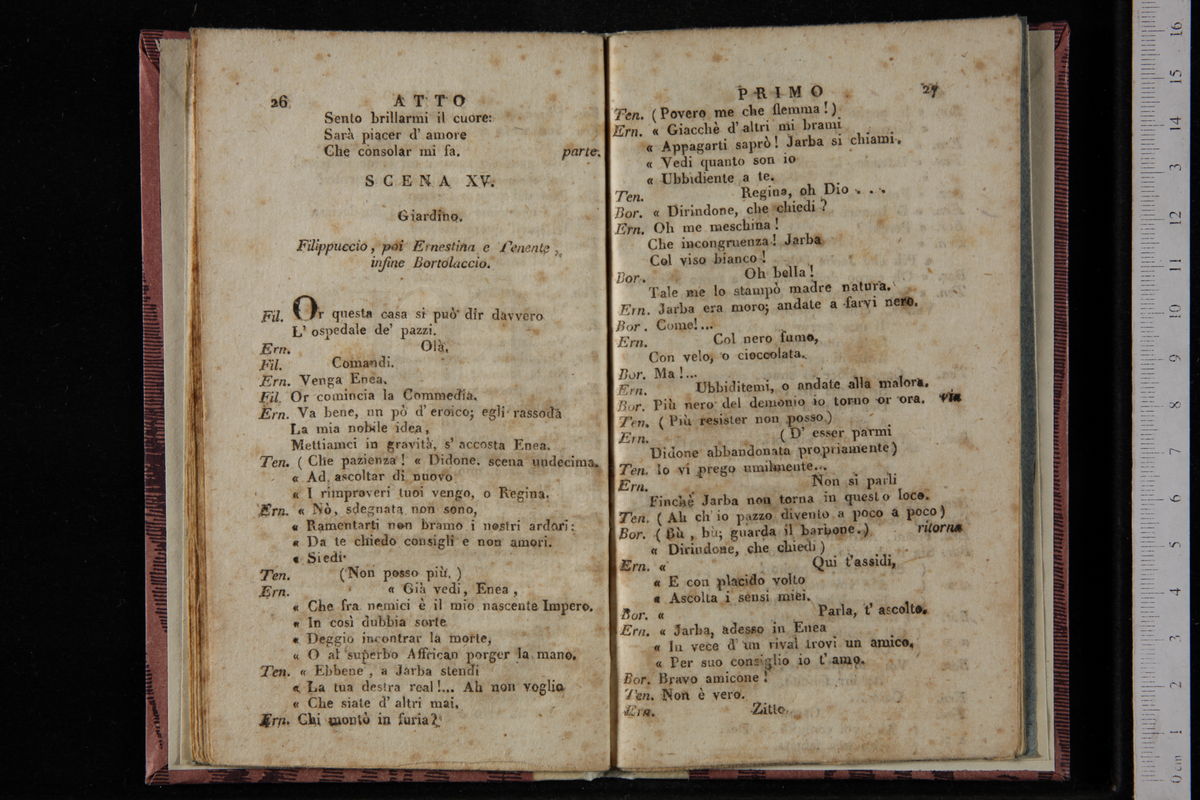 26 ATTO
Sento brillarmi il cuore:
Sarà piacer d' amore
Che consolar mi fa. parte.
SCENA XV.
Giardino.
Filippuccio, poi Ernestina e Tenente,
infine Bortolaccio.
Fil. Or questa casa si può dir davvero
L' ospedale de' pazzi.
Ern. Olà.
Fil. Comandi.
Ern. Venga Enea.
Fil. Or comincia la Commedia.
Ern. Va bene, un pò d' eroico; egli rassoda
La mia nobile idea,
Mettiamci in gravità, s' accosta Enea.
Ten. ( Che pazienza! « Didone. scena undecima.
« Ad ascoltar di nuovo
« I rimproveri tuoi vengo, o Regina.
Ern. « Nò, sdegnata non sono,
« Ramentarti non bramo i nostri ardori:
« Da te chiedo consigli e non amori.
« Siedi.
Ten. (Non posso più. )
Ern. « Già vedi, Enea,
« Che fra nemici è il mio nascente Impero.
« In così dubbia sorte
« Deggio incontrar la morte,
« O al superbo Affrican porger la mano.
Ten. « Ebbene, a Jarba stendi
« La tua destra real!... Ah non voglio
« Che siate d' altri mai.
Ern. Chi montò in furia?
PRIMO 27
Ten. (Povero me che flemma!)
Ern. « Giacchè d' altri mi brami
« Appagarti saprò! Jarba si chiami.
« Vedi quanto son io
« Ubbidiente a te.
Ten. Regina, oh Dio . . .
Bor. « Dirindone, che chiedi?
Ern. Oh me meschina!
Che incongruenza! Jarba
Col viso bianco!
Bor. Oh bella!
Tale me lo stampò madre natura.
Ern. Jarba era moro; andate a farvi nero.
Bor. Come!...
Ern. Col nero fumo,
Con velo, o cioccolata.
Bor. Ma!...
Ern. Ubbiditemi, o andate alla malora.
Bor. Più nero del demonio io torno or ora. via
Ten. ( Più resister non posso)
Ern. ( D' esser parmi
Didone abbandonata propriamente)
Ten. Io vi prego umilmente...
Ern. Non si parli
Finchè Jarba non torna in questo loco.
Ten. ( Ah ch' io pazzo divento a poco a poco)
Bor. ( Bù, bù; guarda il barbone.) ritorna
« Dirindone, che chiedi)
Ern. « Qui t'assidi,
« E con placido volto
« Ascolta i sensi miei.
Bor. « Parla, t' ascolto.
Ern. « Jarba, adesso in Enea
« In vece d' un rival trovi un amico,
« Per suo consiglio io t' amo.
Bor. Bravo amicone!
Ten. Non è vero.
Ern. Zitto.
0 cm 1 2 3 4 5 6 7 8 9 10 11 12 13 14 15 16